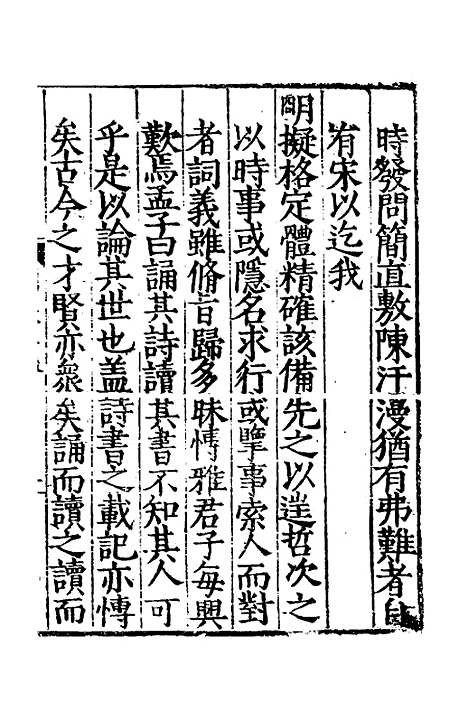 時發問簡直敷陳汗漫猶有弗難者自
有宋以迄我
明擬格定體精確該備先之以遑哲次之
以時事或隱名求行或擧事索人而對
者詞義雖脩旨歸多昧愽雅君子每興
歎焉孟子曰誦其詩讀其書不知其人可
乎是以論其世也盖詩書之載記亦愽
矣古今之才賢亦衆矣誦而讀之讀而